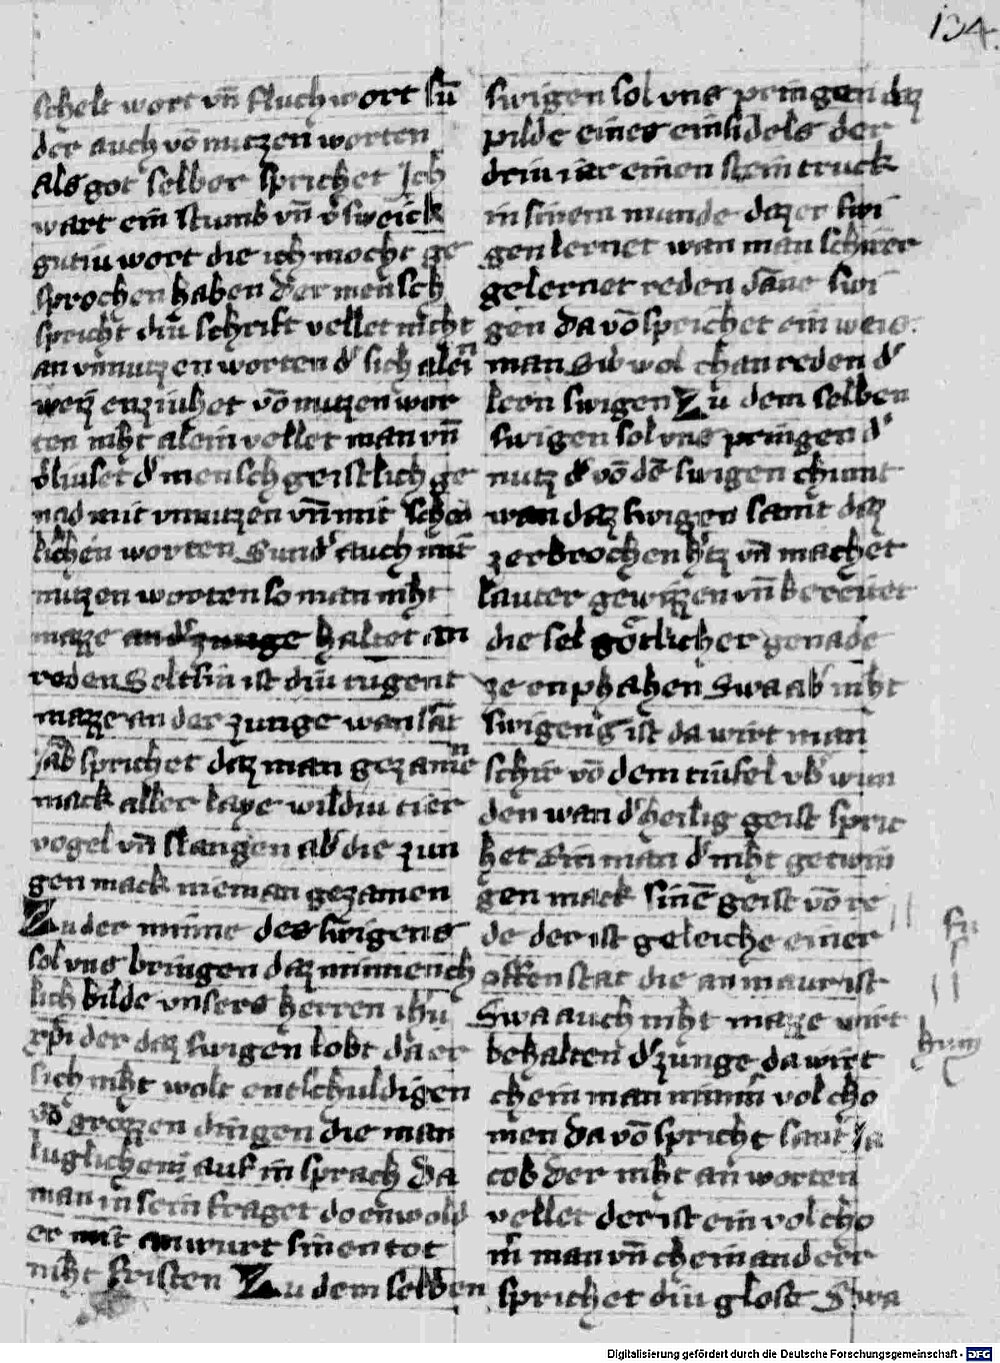 134.
schelt wort vn̄ fluch wort sū
der auch vō nutzen worten
als got selber sprichet Ich
wart ein stumb vn̄ v̓sweick
gutiu wort die ich mocht ge
sprochen haben Der mensch
spricht diu schrift vellet nicht
an vnnutzen worten d̓ sich alein
enziuhet vō nutzen wor
ten niht alein vellet man vn̄
v̓liuset d̓ mensch geistlich ge
nad mit vnnutzen vn̄ mit sched
lichen worten Sund̓ auch mit
nutzen worten so man niht
mazze haltet an
reden Seltsin ist diu tugent
mazze an der zunge wan sāt
Jacb̄ sprichet daz man gezamen
mack aller laye wildiu tier
vogel vn̄ slangen ab̓ die zun
gen mack nieman gezamen
Zu der minne des swigens
sol vns bringen daz minnench
lich bilde vnsers herren ihū
xp̄i der daz swigen lobt da er
sich niht wolt entschuldigen
vō grozzen dingen die man
luglichen auf in sprach Da
man in sein fraget do enwold
er mit antwurt sinen tot
niht fristen Zu dem selben
swigen sol vns pringen daz
pilde eines einsidels der
driu iar einen stein truck
in sinem munde daz er swi
gen lernet wan man schirer
gelernet reden dāne swi
gen Da vō sprichet ein weis.
man Swol chan reden d̓
lern swigen Zu dem selben
swigen sol vns pringen d̓
nutz d̓ vō dē swigen chumt
wan daz swigen samt daz
zerbrochen h̓tz vn̄ machet
lauter gewizzen vn̄ bereitet
die sel götlicher genade
ze enphahen Swa ab̓ niht
swigens ist da wirt man
schir vō dem tiufel vb̓ wun
den wan d̓ heilig geist spric
het Ein man d̓ niht getwin
gen mack sinē geist vō re
de der ist geleiche einer
offen stat die an maur ist
Swa auch niht mazze wirt
behalten d̓ zunge da wirt
chein man nimm̄ volcho
men Da vō spricht sant Ja
cob Der niht an worten
vellet der ist ein volcho
m̄ man vn̄ chein ander
sprichet diu glose Swa
Digitalisierung gefördert durch die Deutsche Forschungsgemeinschaft - DFG